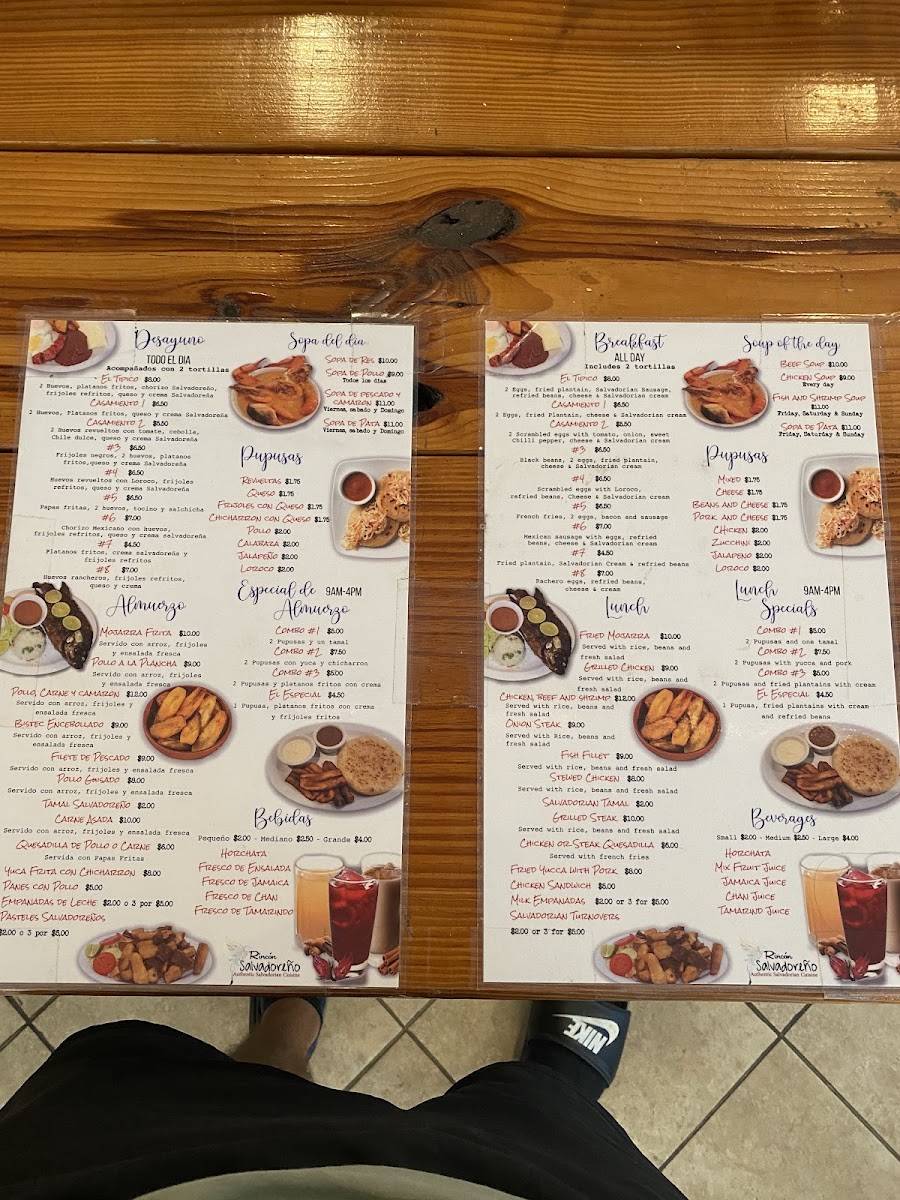 Desayuno
TODO EL DIA
Acompañados con 2 tortillas
El Tipico $8.00
2 Huevos, platanos fritos, chorizo Salvadoreño,
frijoles refritos, queso y crema Salvadoreña
Casamiento 1 $6.50
2 Huevos, Platanos fritos, queso y crema Salvadoreña
Casamiento 2 $5.50
2 Huevos revueltos con tomate, cebolla,
Chile dulce, queso y crema Salvadoreña
#3 $6.50
Frijoles negros, 2 huevos, platanos
fritos,queso y crema Salvadoreña
#4 $6.50
Huevos revueltos con Loroco, frijoles
refritos, queso y crema Salvadoreña
#5 $6.50
Papas fritas, 2 huevos, tocino y salchicha
#6 $7.00
Chorizo Mexicano con huevos,
frijoles refritos, queso y crema Salvadoreña
#7 $4.50
Platanos fritos, crema salvadoreña y
frijoles refritos
#8 $7.00
Huevos rancheros, frijoles refritos,
queso y crema
Sopa del dia
Sopa de Res $10.00
Sopa de Pollo $9.00
Todos los dias
Sopa de pescado y
camaron $11.00
Viernes, sabado y Domingo
Sopa de Pata $11.00
Viernes, sabado y Domingo
Pupusas
Revueltas $1.75
Queso $1.75
Frijoles con Queso $1.75
Chicharron con Queso $1.75
Pollo $2.00
Calabaza $2.00
Jalapeño $2.00
Loroco $2.00
Almuerzo
Mojarra Frita $10.00
Servido con arroz, frijoles
y ensalada fresca
Pollo a la Plancha $9.00
Servido con arroz, frijoles
y ensalada fresca
Pollo, Carne y camaron $12.00
Servido con arroz, frijoles y
ensalada fresca
Bistec Encebollado $9.00
Servido con arroz, frijoles y
ensalada fresca
Filete de Pescado $9.00
Servido con arroz, frijoles y ensalada fresca
Pollo Guisado $8.00
Servido con arroz, frijoles y ensalada fresca
Tamal Salvadoreño $2.00
Carne Asada $10.00
Servido con arroz, frijoles y ensalada fresca
Quesadilla de Pollo o Carne $6.00
Servida con Papas Fritas
Yuca Frita con Chicharron $8.00
Panes con Pollo $5.00
Empanadas de Leche $2.00 o 3 por $5.00
Pasteles Salvadoreños
$2.00 o 3 por $5.00
Especial de 9AM-4PM
Almuerzo
Combo #1 $5.00
2 Pupusas y un tamal
Combo #2 $7.50
2 Pupusas con yuca y chicharron
Combo #3 $5.00
2 Pupusas y platanos fritos con crema
El Especial $4.50
1 Pupusa, platanos fritos con crema
y frijoles fritos
Bebidas
Pequeño $2.00 - Mediano $2.50 - Grande $4.00
Horchata
Fresco de Ensalada
Fresco de Jamaica
Fresco de Chan
Fresco de Tamarindo
Rincón
Salvadoreño
Authentic Salvadorian Cuisine
Breakfast
ALL DAY
Includes 2 tortillas
El Tipico $8.00
2 Eggs, fried plantain, Salvadorian Sausage,
refried beans, cheese & Salvadorian cream
Casamiento 1 $6.50
2 Eggs, fried Plantain, cheese & Salvadorian cream
Casamiento 2 $5.50
2 Scrambled eggs with tomato, onion, sweet
Chilli pepper, cheese & Salvadorian cream
#3 $6.50
Black beans, 2 eggs, fried plantain,
cheese & Salvadorian cream
#4 $6.50
Scrambled eggs with Loroco,
refried beans, Cheese & Salvadorian cream
#5 $6.50
French fries, 2 eggs, bacon and sausage
#6 $7.00
Mexican sausage with eggs, refried
beans, cheese & Salvadorian cream
#7 $4.50
Fried plantain, Salvadorian Cream & refried beans
#8 $7.00
Rachero eggs, refried beans,
cheese & cream
Soup of the day
Beef Soup $10.00
Chicken Soup $9.00
Every day
Fish and Shrimp Soup
$11.00
Friday, Saturday & Sunday
Sopa de Pata $11.00
Friday, Saturday & Sunday
Pupusas
Mixed $1.75
Cheese $1.75
Beans and Cheese $1.75
Pork and Cheese $1.75
Chicken $2.00
Zucchini $2.00
Jalapeno $2.00
Loroco $2.00
Lunch
Fried Mojarra $10.00
Served with rice, beans and
fresh salad
Grilled Chicken $9.00
Served with rice, beans and
fresh salad
Chicken, Beef and shrimp $12.00
Served with rice, beans and
fresh salad
Onion Steak $9.00
Served with Rice, beans and
fresh salad
Fish Fillet $9.00
Served with rice, beans and fresh salad
Stewed Chicken $8.00
Served with rice, beans and fresh salad
Salvadorian Tamal $2.00
Grilled Steak $10.00
Served with rice, beans and fresh salad
Chicken or Steak Quesadilla $6.00
Served with french fries
Fried Yucca with Pork $8.00
Chicken Sandwich $5.00
Milk Empanadas $2.00 or 3 for $5.00
Salvadorian Turnovers
$2.00 or 3 for $5.00
Lunch 9AM-4PM
Specials
Combo #1 $5.00
2 Pupusas and one tamal
Combo #2 $7.50
2 Pupusas with yucca and pork
Combo #3 $5.00
2 Pupusas and fried plantains with cream
El Especial $4.50
1 Pupusa, fried plantains with cream
and refried beans
Beverages
Small $2.00 - Medium $2.50 - Large $4.00
Horchata
Mix Fruit Juice
Jamaica Juice
Chan Juice
Tamarind Juice
Rincón
Salvadoreño
Authentic Salvadorian Cuisine
NIKE